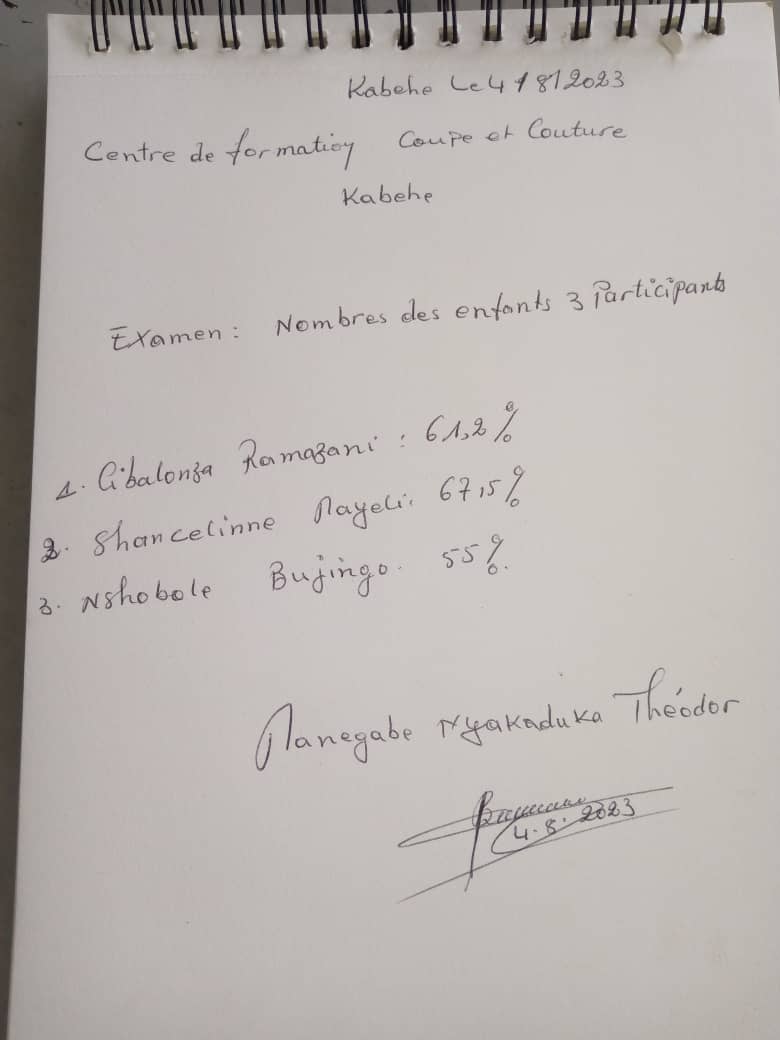 Kabehe Le 4/8/2023
Centre de formation Coupe et Couture
Kabehe
Examen: Nombres des enfants 3 Participants
1. Cibalonza Ramazani : 61,2%
2. Shancelinne Mayeli. 67,5%
3. Nshobole Bujingo. 55%.
Manegabe Nyakaduka Théodor
4.8.2023